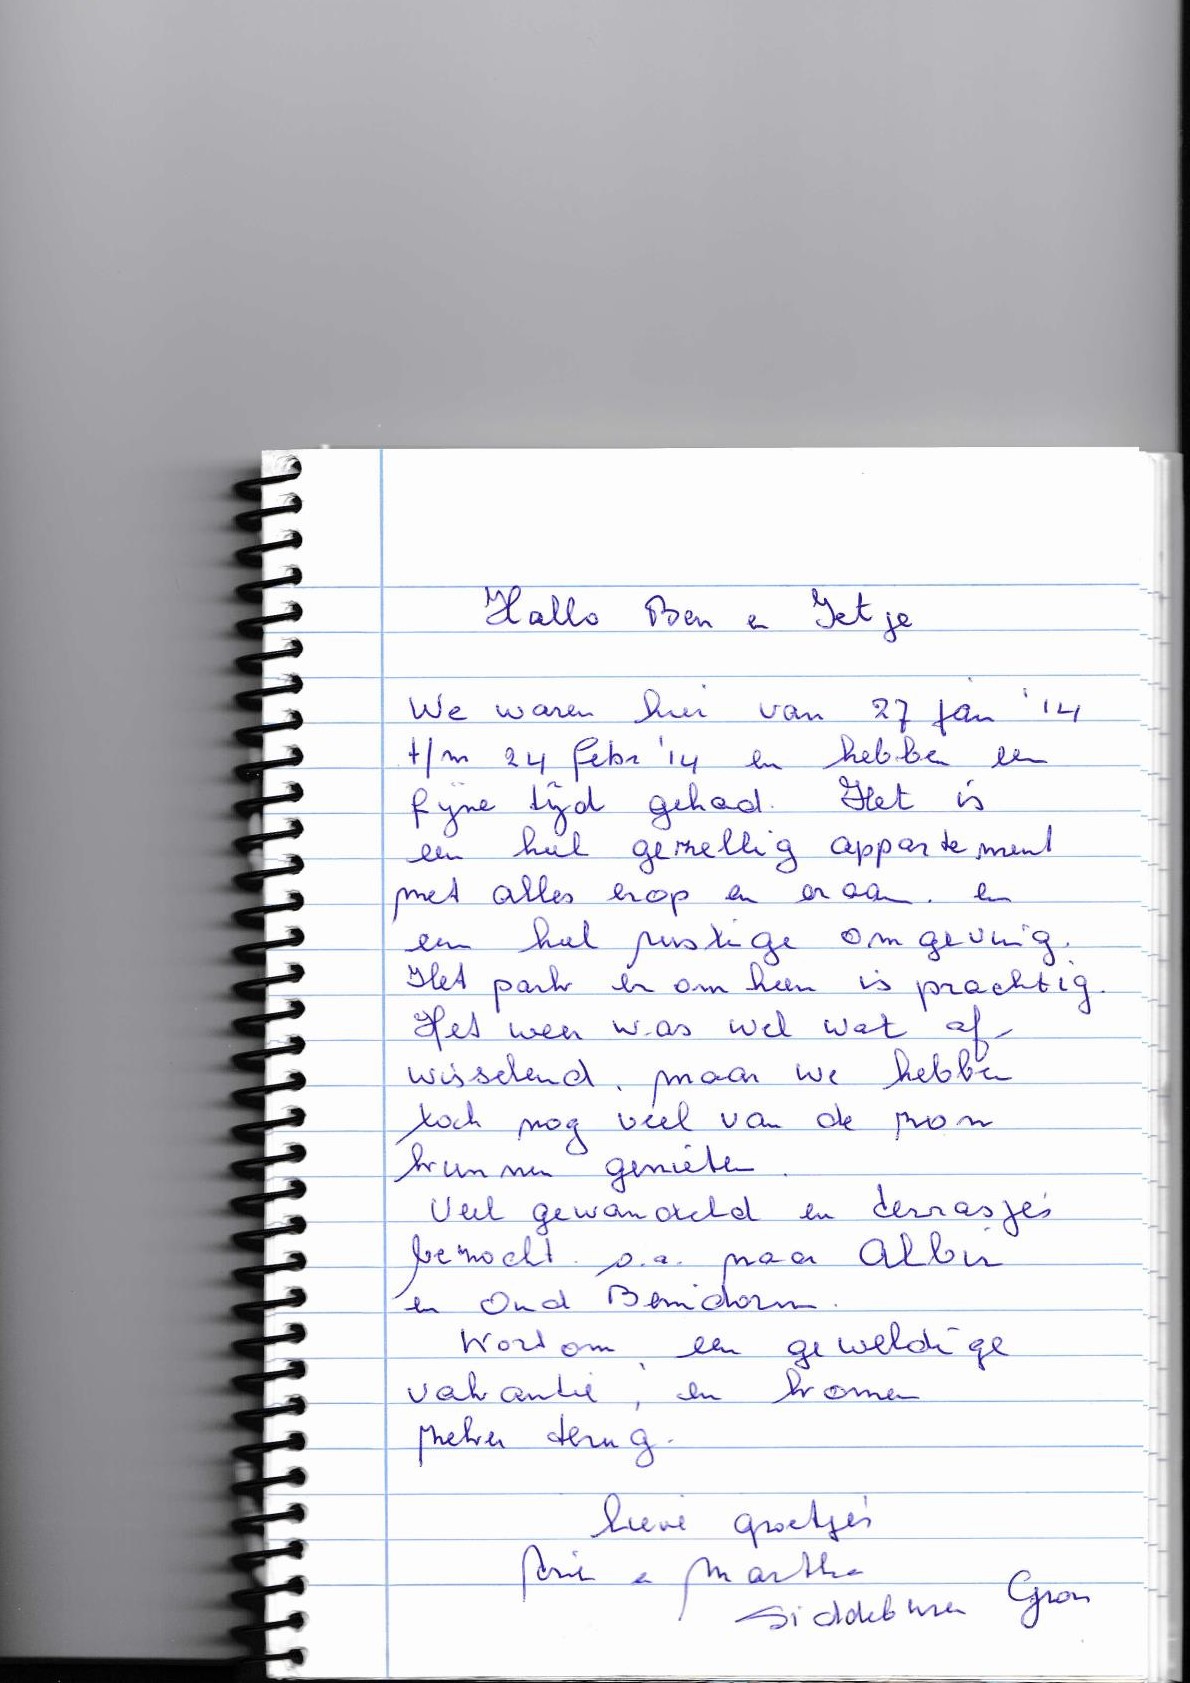 Hallo Ben en Jetje
We waren hier van 27 jan '14
t/m 24 febr '14 en hebben een
fijne tijd gehad. Het is
een heel gezellig appartement
met alles erop en eraan. en
een heel rustige omgeving.
Het park er om heen is prachtig.
Het weer was wel wat af-
wisselend, maar we hebben
toch nog veel van de zon
kunnen genieten.
Veel gewandeld en terrasjes
bezocht o.a. naar Albir
en Oud Benidorm.
Kortom, een geweldige
vakantie, en komen
zeker terug.
Lieve groetjes
en Martha
Siddeburen Gron